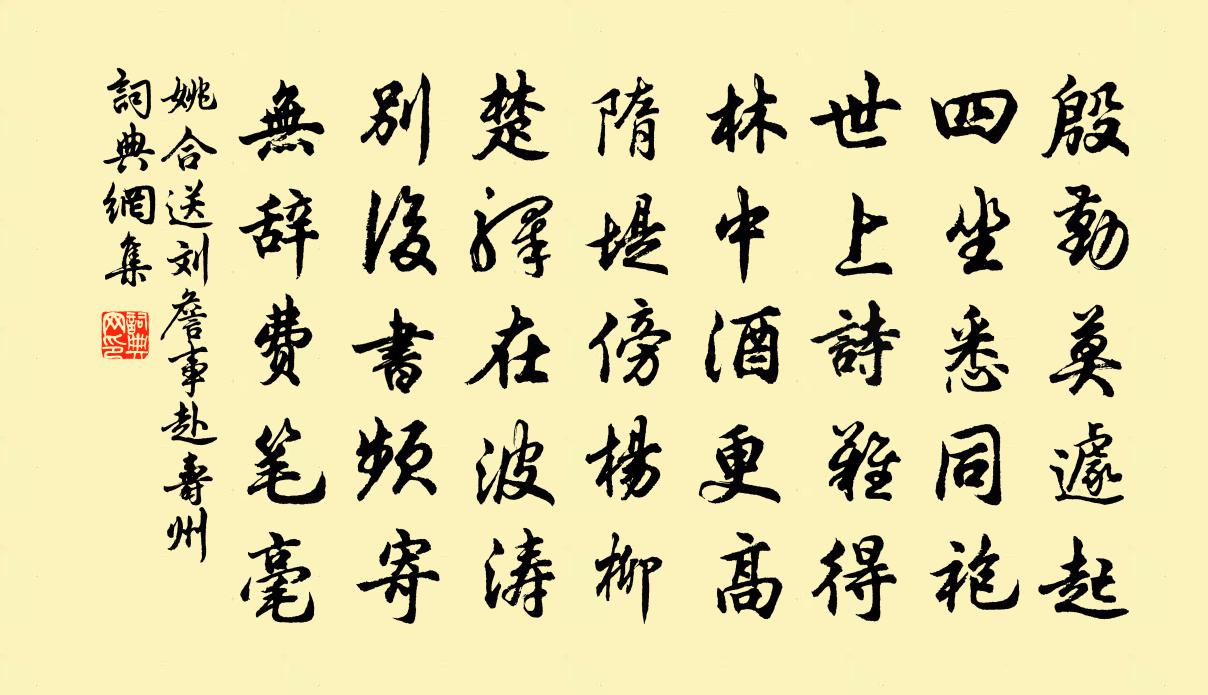 殷勤莫遽起
四坐悉同袍
世上詩難得
林中酒更高
隋堤傍楊柳
楚驛在波涛
別後書頻寄
無辞費笔毫
姚合送刘詹事赴壽州
詞典網集
詞典
网印